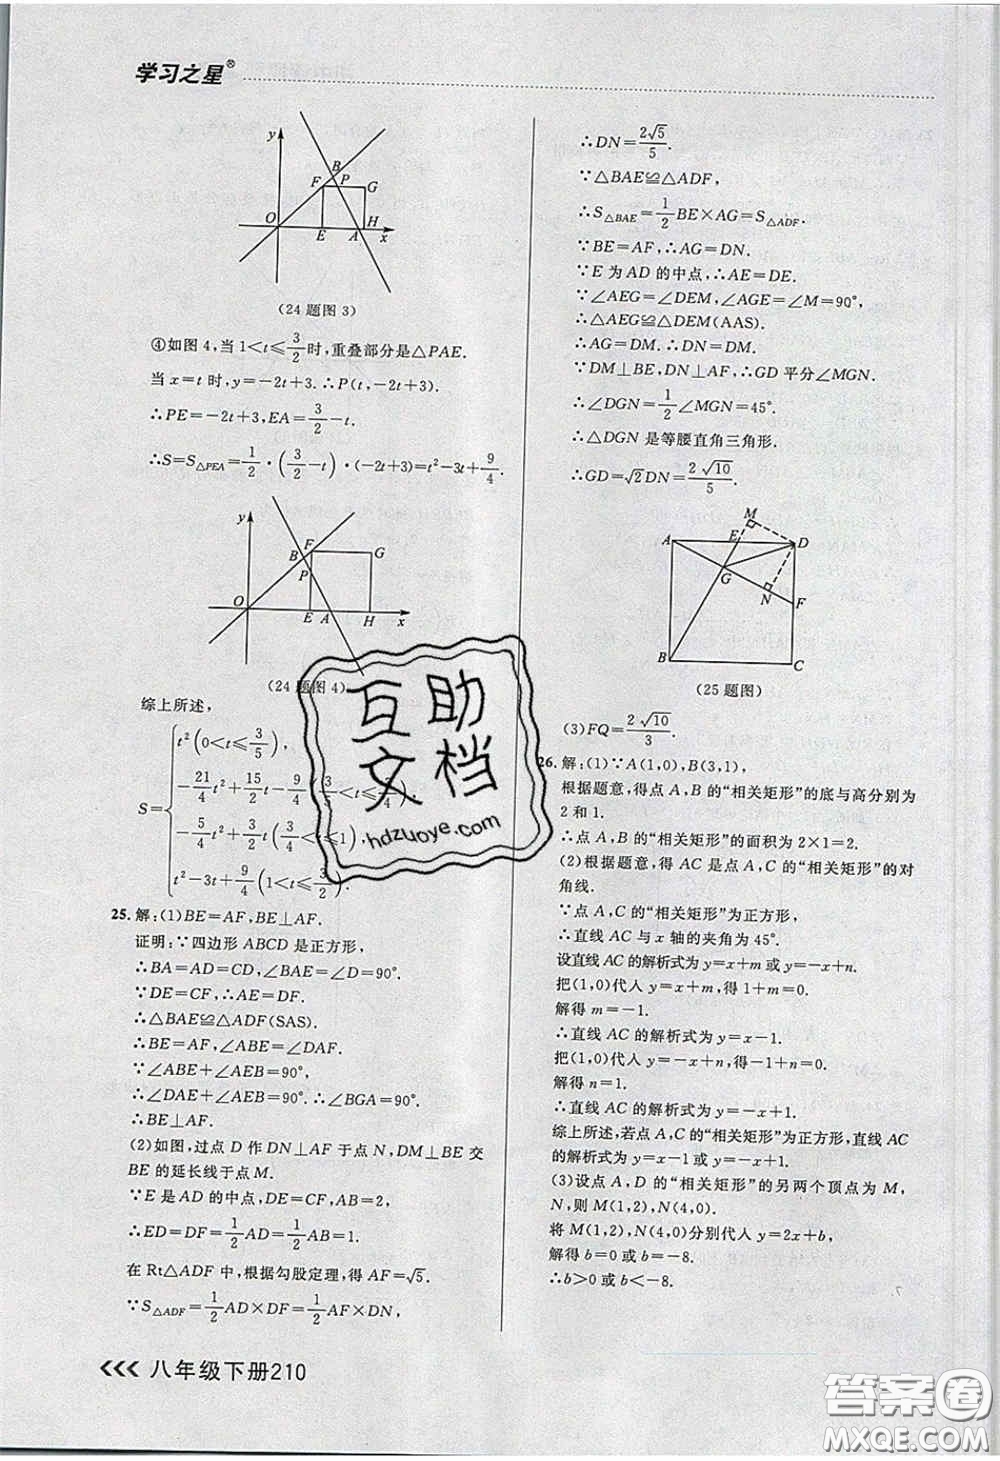 学习之星®
y
B
F
P
G
O
E
A
H
x
(24题图3)
④如图4,当1<t≤3/2时,重叠部分是△PAE.
当x=t时,y=-2t+3.∴P(t,-2t+3).
∴PE=-2t+3,EA=3/2-t.
∴S=S△PEA=1/2·(3/2-t)·(-2t+3)=t²-3t+9/4.
y
F
B
G
P
O
E
A
H
x
(24题图4)
综上所述,
t²(0<t≤3/5),
-21/4t²+15/2t-9/4(3/5<t≤3/4),
S=
-5/4t²+3/2t(3/4<t≤1),
t²-3t+9/4(1<t≤3/2).
25.解:(1)BE=AF,BE⊥AF.
证明:∵四边形ABCD是正方形,
∴BA=AD=CD,∠BAE=∠D=90°.
∵DE=CF,∴AE=DF.
∴△BAE≌△ADF(SAS).
∴BE=AF,∠ABE=∠DAF.
∵∠ABE+∠AEB=90°,
∴∠DAE+∠AEB=90°.∴∠BGA=90°.
∴BE⊥AF.
(2)如图,过点D作DN⊥AF于点N,DM⊥BE交
BE的延长线于点M.
∵E是AD的中点,DE=CF,AB=2,
∴ED=DF=1/2AD=1/2AB=1.
在Rt△ADF中,根据勾股定理,得AF=√5.
∵S△ADF=1/2AD×DF=1/2AF×DN,
∴DN=2√5/5.
∵△BAE≌△ADF,
∴S△BAE=1/2BE×AG=S△ADF.
∵BE=AF,∴AG=DN.
∵E为AD的中点,∴AE=DE.
∵∠AEG=∠DEM,∠AGE=∠M=90°,
∴△AEG≌△DEM(AAS).
∴AG=DM.∴DN=DM.
∵DM⊥BE,DN⊥AF,∴GD平分∠MGN.
∴∠DGN=1/2∠MGN=45°.
∴△DGN是等腰直角三角形.
∴GD=√2DN=2√10/5.
M
A
E
D
G
N
F
B
C
(25题图)
(3)FQ=2√10/3.
26.解:(1)∵A(1,0),B(3,1),
根据题意,得点A,B的“相关矩形”的底与高分别为
2和1.
∴点A,B的“相关矩形”的面积为2×1=2.
(2)根据题意,得AC是点A,C的“相关矩形”的对
角线.
∵点A,C的“相关矩形”为正方形,
∴直线AC与x轴的夹角为45°.
设直线AC的解析式为y=x+m或y=-x+n.
把(1,0)代人y=x+m,得1+m=0.
解得m=-1.
∴直线AC的解析式为y=x-1.
把(1,0)代人y=-x+n,得-1+n=0.
解得n=1.
∴直线AC的解析式为y=-x+1.
综上所述,若点A,C的“相关矩形”为正方形,直线AC
的解析式为y=x-1或y=-x+1.
(3)设点A,D的“相关矩形”的另两个顶点为M,
N,则M(1,2),N(4,0).
将M(1,2),N(4,0)分别代人y=2x+b,
解得b=0或b=-8.
∴b>0或b<-8.
互助
文档
hdzuoye.com
八年级下册210
答案卷
MXQE.COM